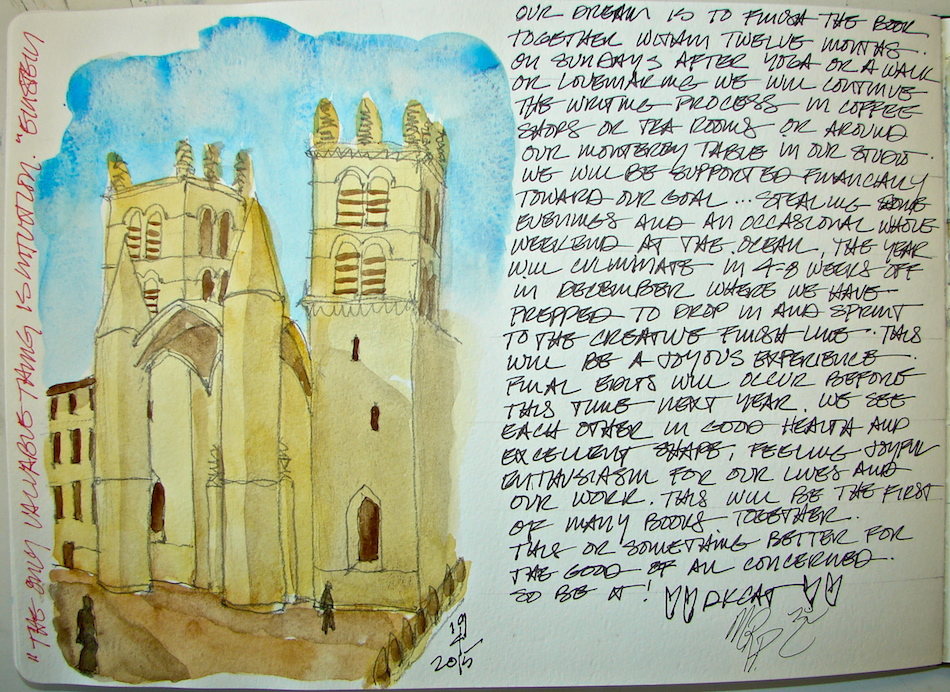 "THE ONLY VALUABLE THING IS INTUITION." EINSTEIN
OUR DREAM IS TO FINISH THE BOOK
TOGETHER WITHIN TWELVE MONTHS.
ON SUNDAYS AFTER YOGA OR A WALK
OR LOVEMAKING WE WILL CONTINUE
THE WRITING PROCESS IN COFFEE
SHOPS OR TEA ROOMS OR AROUND
OUR MONTEREY TABLE IN OUR STUDIO.
WE WILL BE SUPPORTED FINANCIALLY
TOWARD OUR GOAL ... STEALING SOME
EVENINGS AND AN OCCASIONAL WHOLE
WEEKEND AT THE OCEAN. THE YEAR
WILL CULMINATE IN 4-8 WEEKS OFF
IN DECEMBER WHERE WE HAVE
PREPPED TO DROP IN AND SPRINT
TO THE CREATIVE FINISH LINE. THIS
WILL BE A JOYOUS EXPERIENCE.
FINAL EDITS WILL OCCUR BEFORE
THIS TIME NEXT YEAR. WE SEE
EACH OTHER IN GOOD HEALTH AND
EXCELLENT SHAPE, FEELING JOYFUL
ENTHUSIASM FOR OUR LIVES AND
OUR WORK. THIS WILL BE THE FIRST
OF MANY BOOKS TOGETHER.
THIS OR SOMETHING BETTER FOR
THE GOOD OF ALL CONCERNED.
SO BE IT! DKCAT
19
4
2015